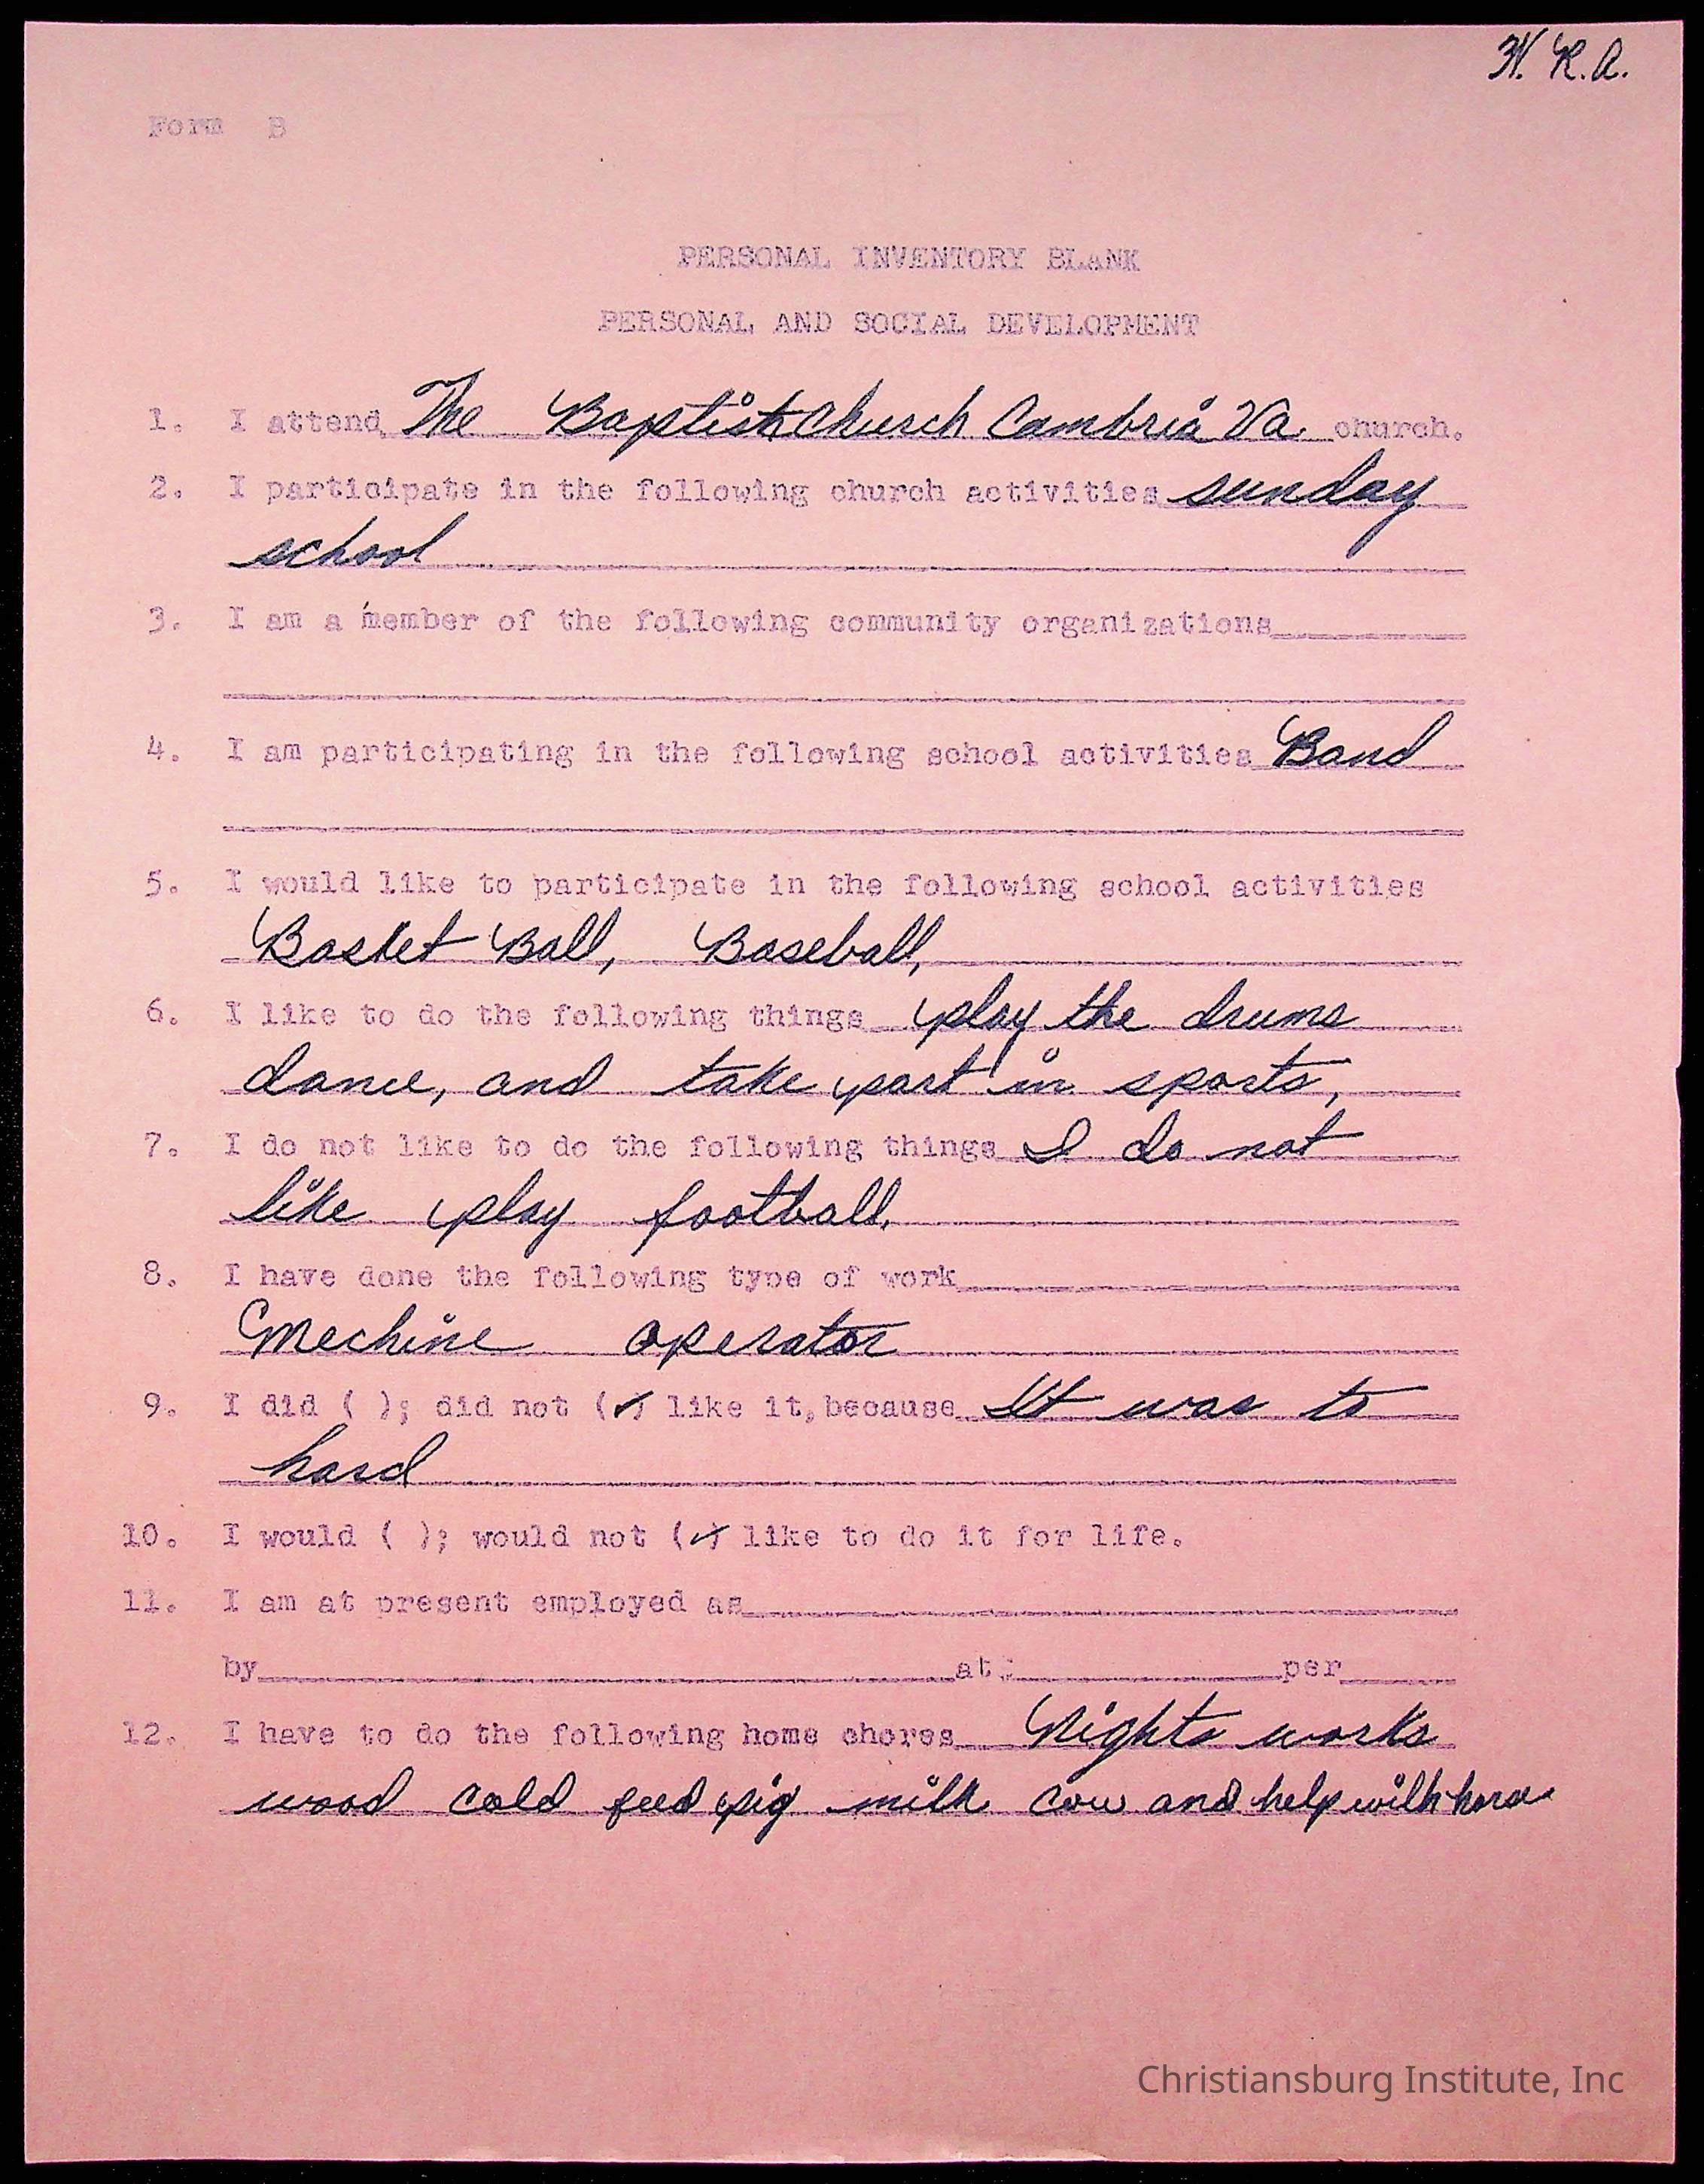 H. R. A.
Form B
PERSONAL INVENTORY BLANK
PERSONAL AND SOCIAL DEVELOPMENT
1. I attend The Baptist Church Cambria Va. church.
2. I participate in the following church activities sunday
school
3. I am a member of the following community organizations
4. I am participating in the following school activities Band
5. I would like to participate in the following school activities
Basket Ball, Baseball,
6. I like to do the following things play the drums
dance, and take part in sports,
7. I do not like to do the following things I do not
like play football.
8. I have done the following type of work
Mechine operator
9. I did ( ); did not (✓) like it, because It was to
hard
10. I would ( ); would not (✓) like to do it for life.
11. I am at present employed as
by at per
12. I have to do the following home chores Nights works
wood cold feed pig milk cow and help with
Christiansburg Institute, Inc